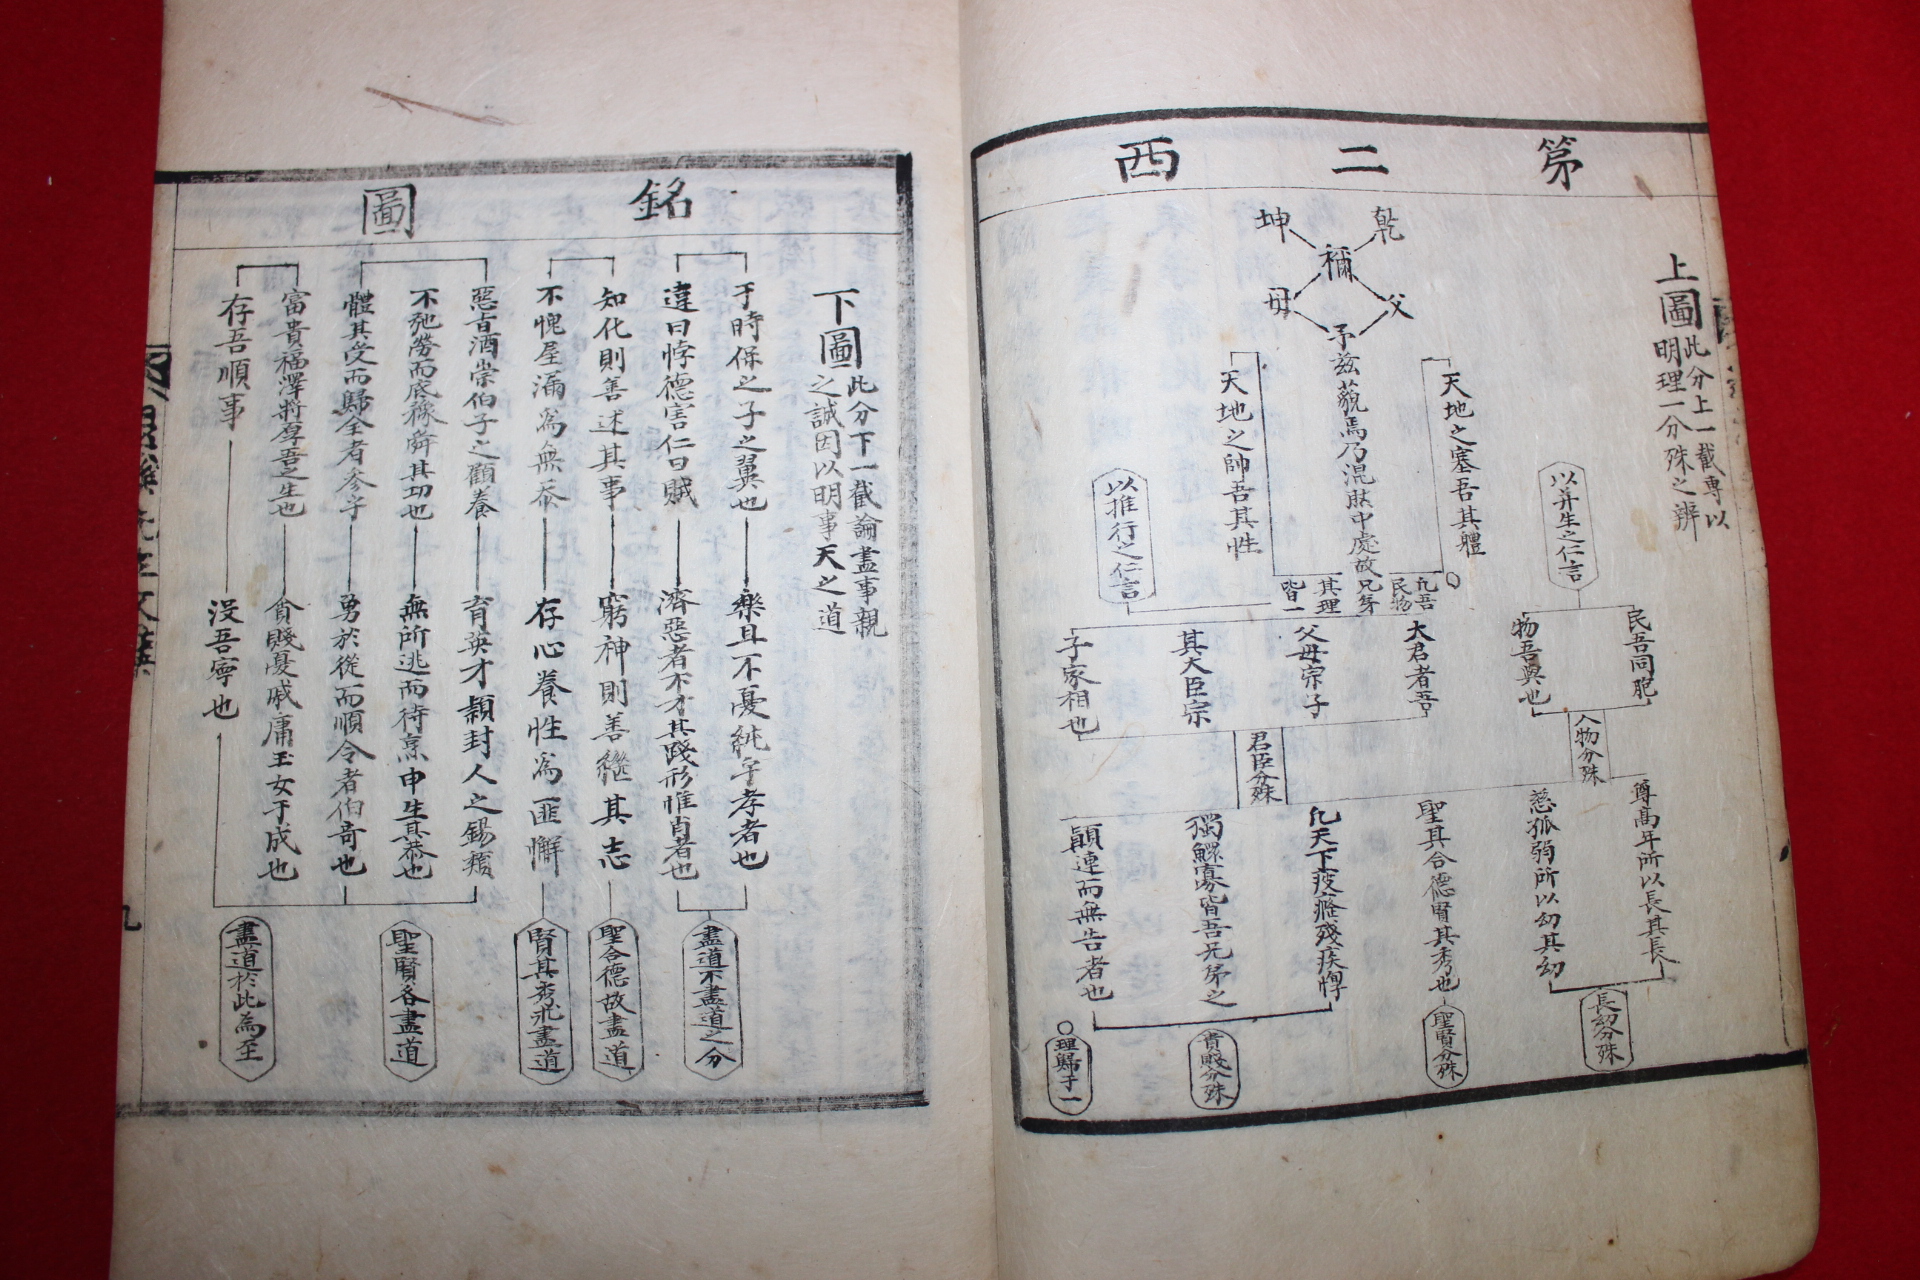 第二西
上圖此分上一截專以
明理一分殊之辨
乾
坤
稱
父
母
予茲藐焉乃混然中處故
天地之塞吾其體
天地之帥吾其性
凡吾
民物
兄弟
其理
皆一
以並生之仁言
以推行之仁言
民吾同胞
物吾與也
人物分殊
大君者吾
父母宗子
其大臣宗
子家相也
君臣分殊
尊高年所以長其長
慈孤弱所以幼其幼
聖其合德賢其秀也
凡天下疲癃殘疾惸
獨鰥寡皆吾兄弟之
顚連而無告者也
長幼分殊
聖賢分殊
貴賤分殊
○理歸于一
銘圖
下圖此分下一截論盡事親
之誠因以明事天之道
于時保之子之翼也
樂且不憂純乎孝者也
違曰悖德害仁曰賊
濟惡者不才其踐形惟肖者也
盡道不盡道之分
知化則善述其事
窮神則善繼其志
聖合德故盡道
不愧屋漏爲無忝
存心養性爲匪懈
賢其秀求盡道
惡旨酒崇伯子之顧養
育英才穎封人之錫類
不弛勞而底豫舜其功也
無所逃而待烹申生其恭也
體其受而歸全者參乎
勇於從而順令者伯奇也
聖賢各盡道
富貴福澤將厚吾之生也
貧賤憂戚庸玉女于成也
存吾順事
沒吾寧也
盡道於此爲至
九